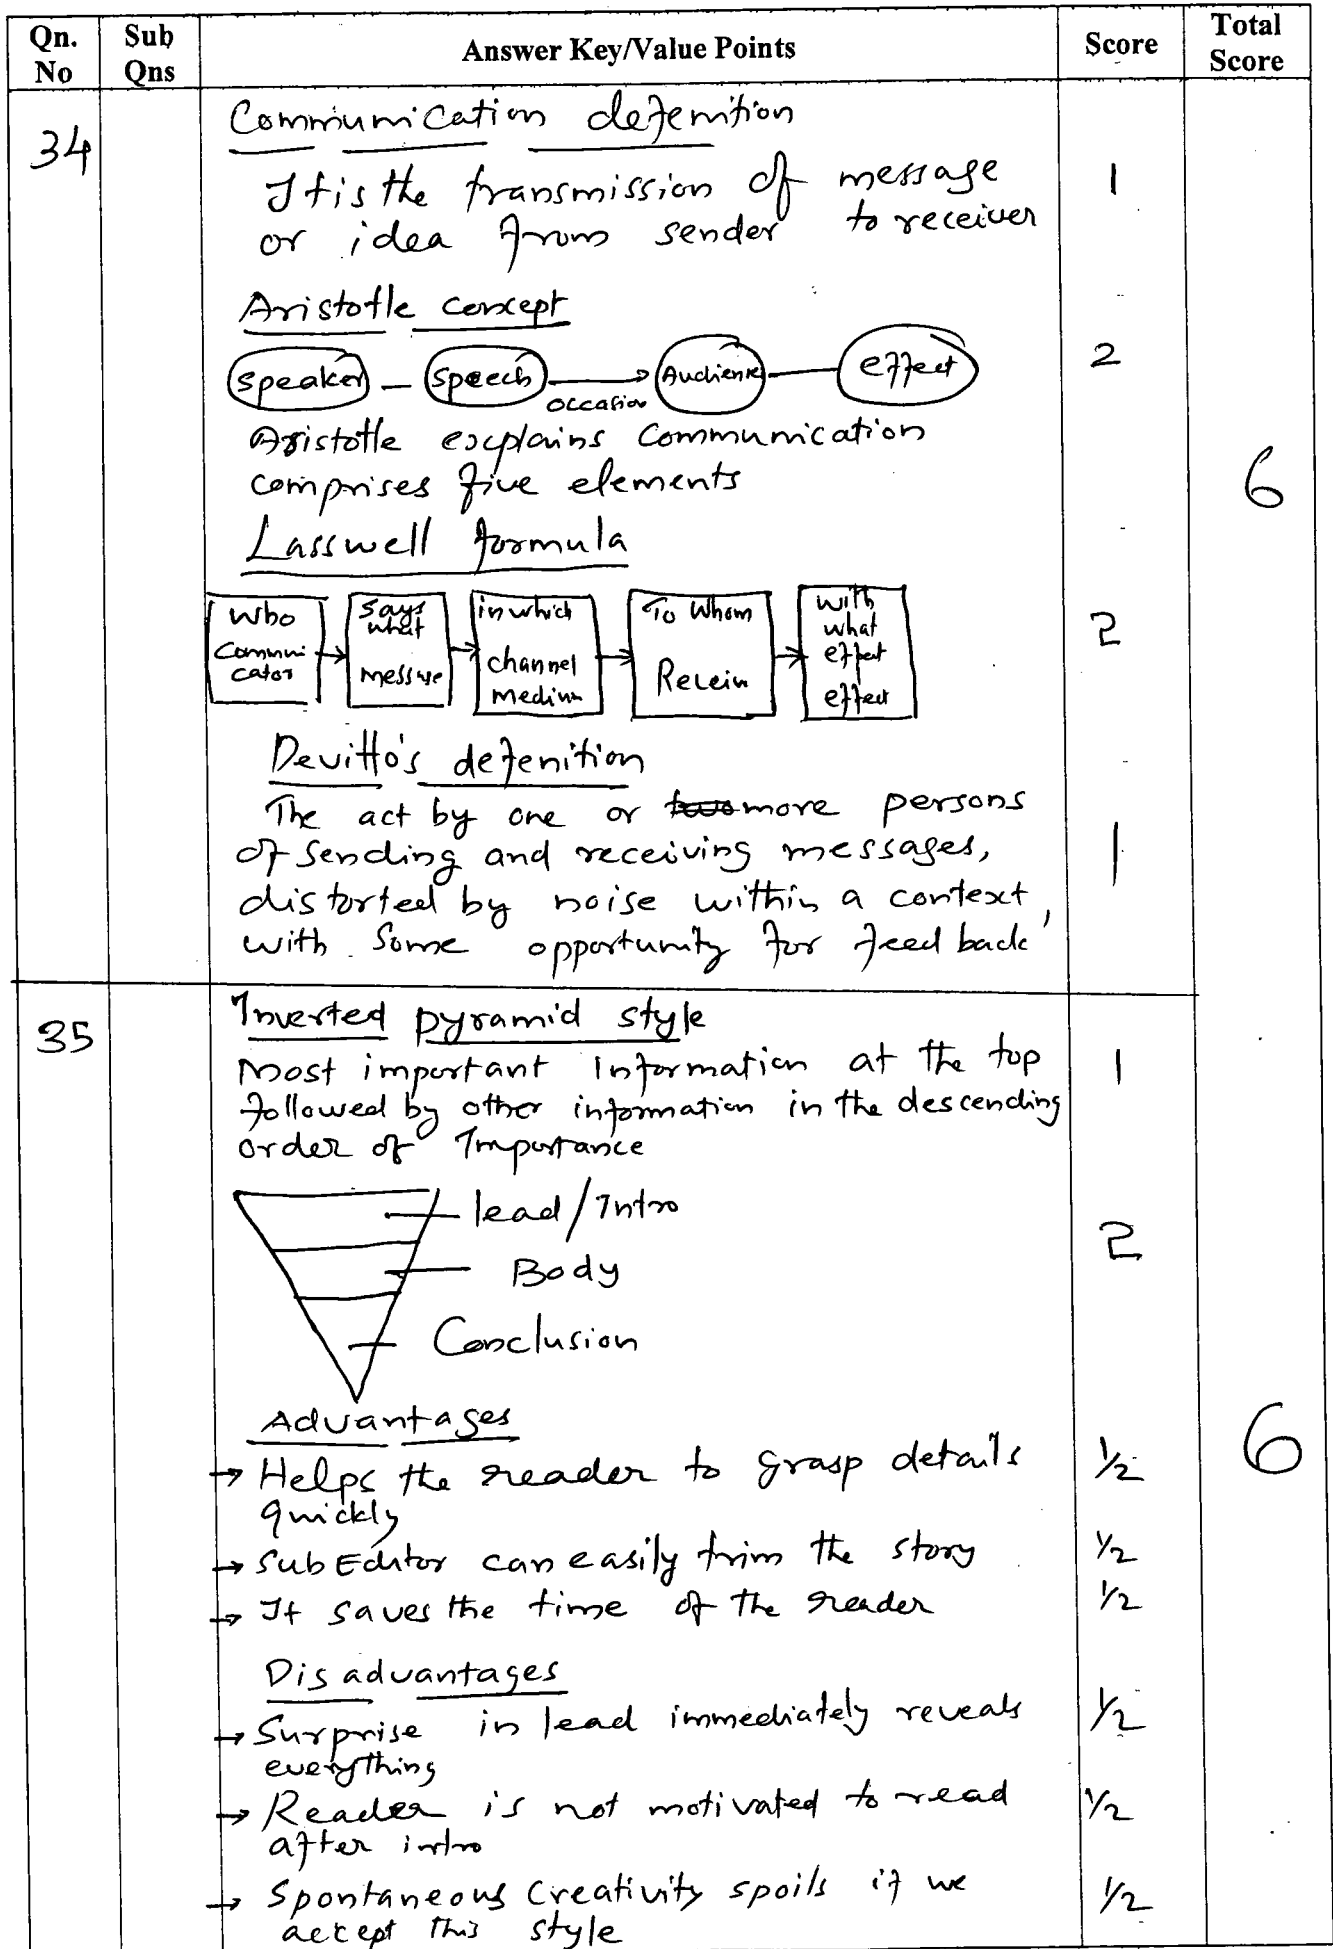 Qn. No Sub Qns Answer Key/Value Points Score Total Score
34 Communication defenition
It is the transmission of message 1
or idea from sender to receiver
Aristotle concept
speaker speech occasion Audience effect 2
Aristotle explains communication
comprises five elements 6
Lasswell formula
Who says what in which To Whom with what effect 2
Communicator message channel medium effect
Devitto's defenition
The act by one or two more persons
of sending and receiving messages, 1
distorted by noise within a context,
with some opportunity for feed back
35 Inverted pyramid style
Most important Information at the top 1
followed by other information in the descending
order of Importance
lead/Intro
Body 2
Conclusion
Advantages 6
→ Helps the reader to grasp details 1/2
quickly
→ Sub Editor can easily trim the story 1/2
→ It saves the time of the reader 1/2
Disadvantages
→ Surprise in lead immediately reveals 1/2
everything
→ Reader is not motivated to read 1/2
after intro
→ Spontaneous Creativity spoils if we 1/2
accept this style